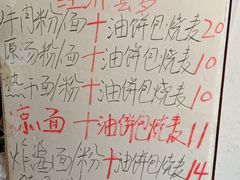 牛肉粉/面十油饼包烧麦20
原汤粉/面十油饼包烧麦10
热干面/粉十油饼包烧麦10
凉面十油饼包烧麦11
炸酱面/粉十油饼包烧麦14